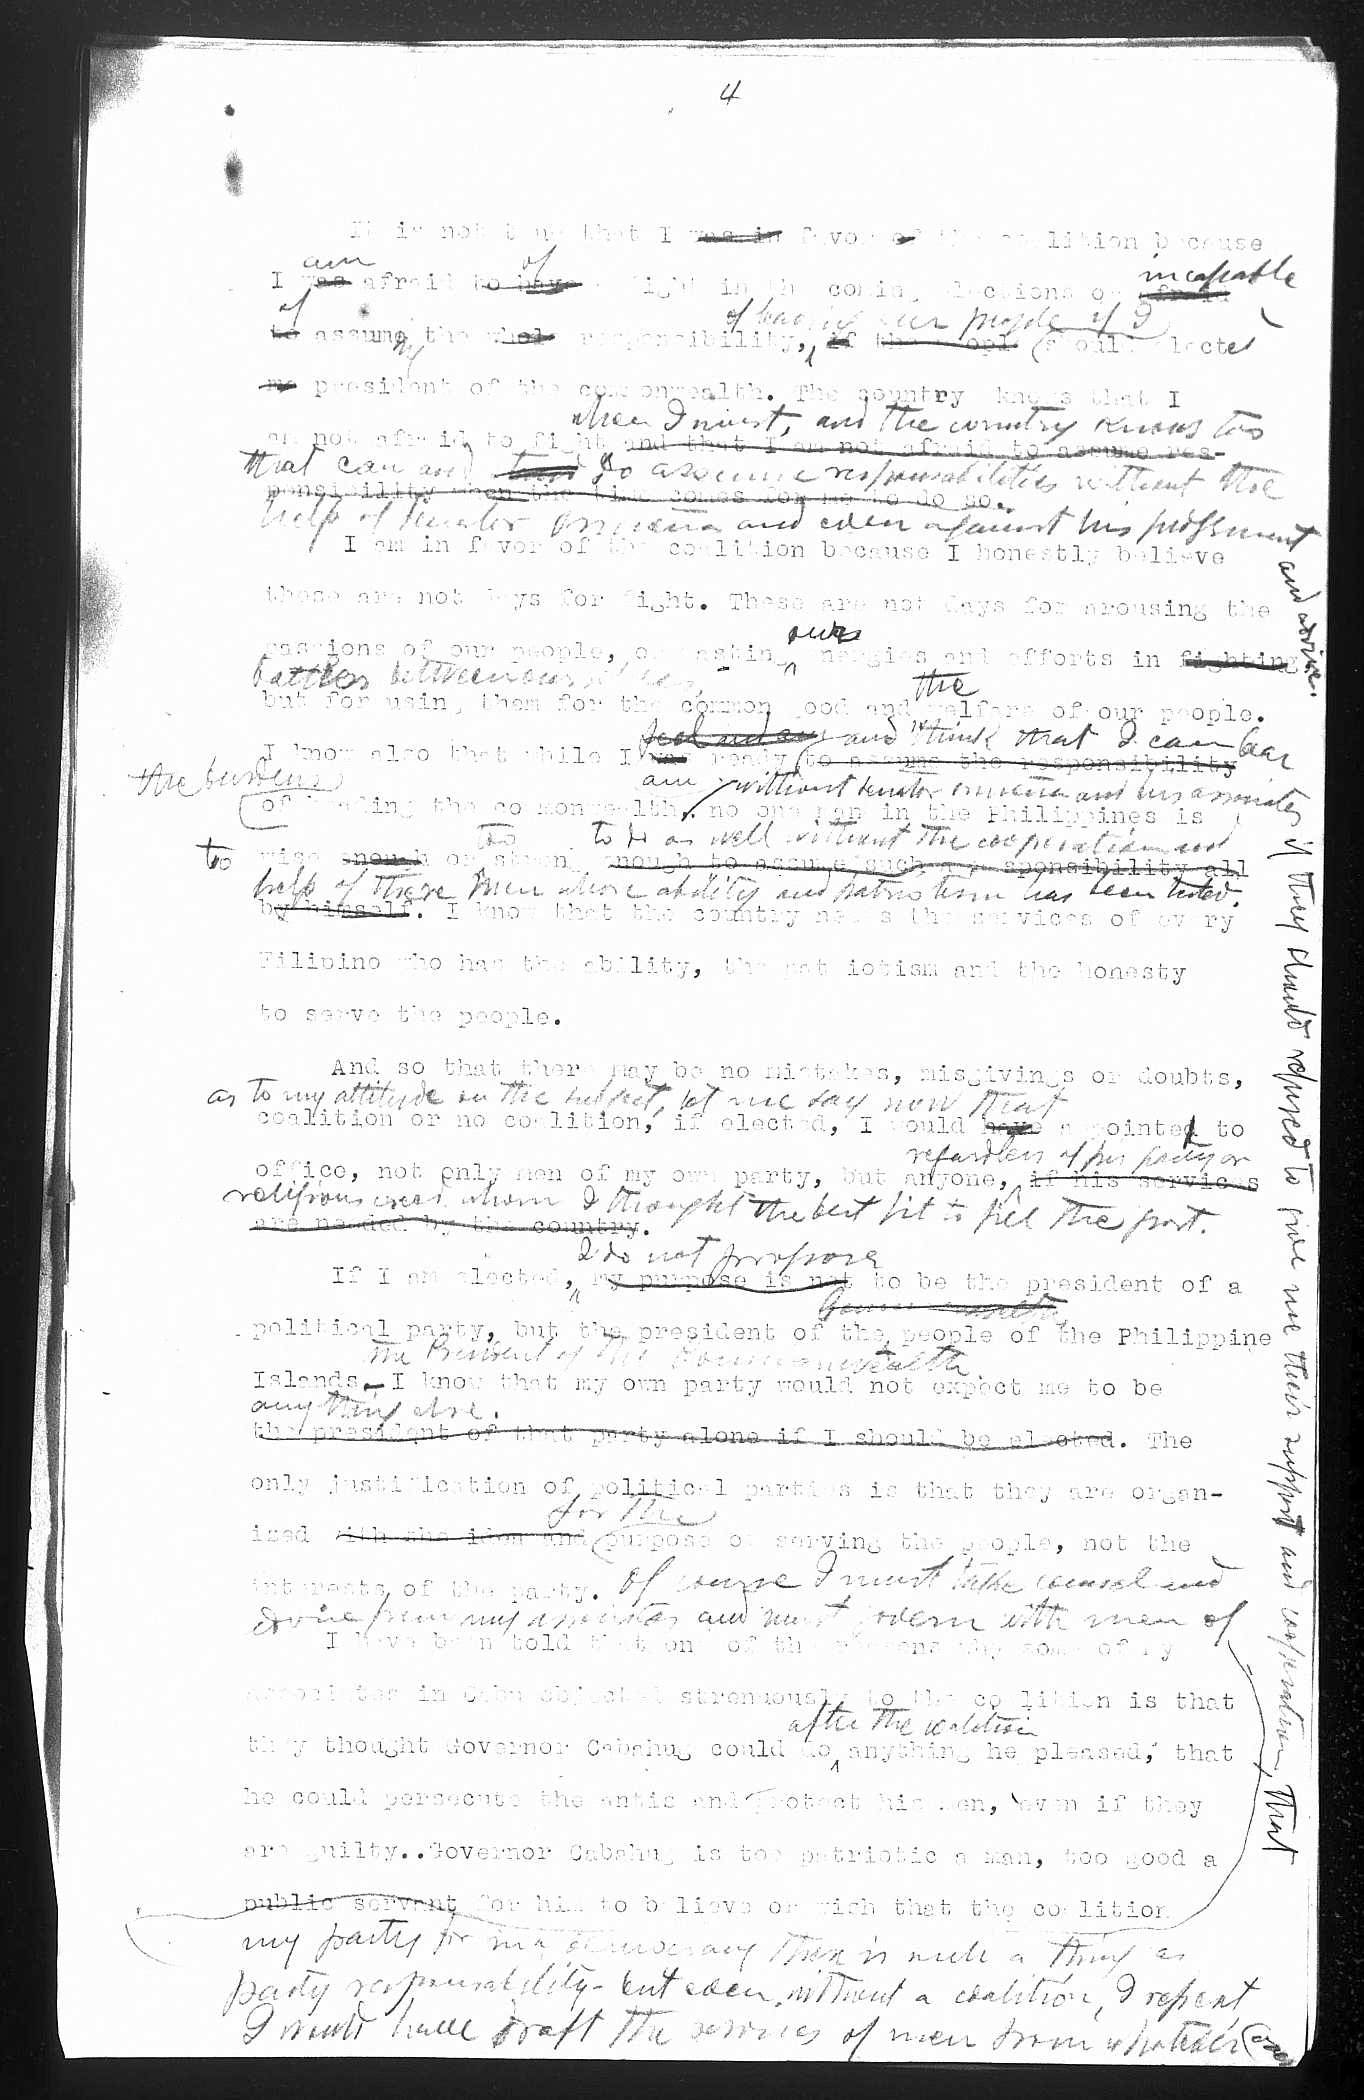 4
It is not true that I was in favor of the coalition because
am of incapable
I was afraid to have a fight in the coming elections or afraid
of of our people if I
to assume the whole responsibility, if the people should elected
me president of the commonwealth. The country knows that I
when I must, and the country knows too
am not afraid to fight and that I am not afraid to assume res-
that can and to assume responsibilities without the
ponsibility when the time comes for me to do so.
help of Senator Osmeña and even against his judgment and advice.
I am in favor of the coalition because I honestly believe
these are not days for fight. These are not days for arousing the
our
passions of our people, or wasting energies and efforts in fighting
battles between ourselves, the
but for using them for the common good and welfare of our people.
feel and say and think that I can bear
I know also that while I was ready to assume the responsibility
the burdens am without Senator Osmeña and his associates if they should refused to give me their support and cooperation, that
of leading the commonwealth, no one man in the Philippines is
too to do as well without the cooperation and
to wise enough or strong enough to assume such a responsibility all
help of these men whose ability and patriotism has been tested.
by himself. I know that the country needs the services of every
Filipino who has the ability, the patriotism and the honesty
to serve the people.
And so that there may be no mistakes, misgivings or doubts,
as to my attitude on the subject, let me say now that
coalition or no coalition, if elected, I would have appointed to
regardless of his party or
office, not only men of my own party, but anyone, if his services
religious creed whom I thought the best fit to fill the post.
are needed by the country.
I do not propose
If I am elected, my purpose is not to be the president of a
political party, but the president of the people of the Philippine
the President of the Commonwealth
Islands. I know that my own party would not expect me to be
anything else.
the president of that party alone if I should be elected. The
only justification of political parties is that they are organ-
for the
ized with the idea and purpose of serving the people, not the
interests of the party. Of course I must take counsel and
advice from my associates and must govern with men of
I have been told that one of the reasons why some of my
associates in Cebu objected strenuously to the coalition is that
after the coalition
they thought Governor Cabahug could do anything he pleased, that
he could persecute the antis and protect his men, even if they
are guilty..Governor Cabahug is too patriotic a man, too good a
public servant for him to believe or wish that the coalition
my party for in a democracy there is such a thing as
party responsibility - but even without a coalition, I repeat
I would have draft the services of men from whatever